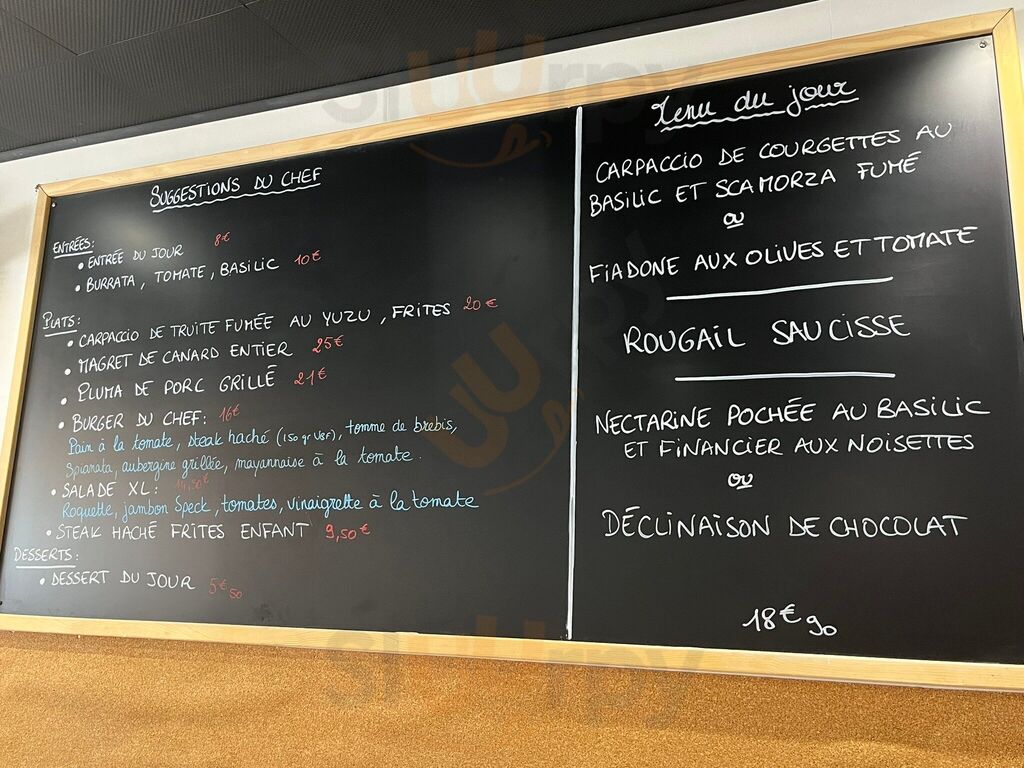 SUGGESTIONS DU CHEF
ENTRÉES:
• ENTRÉE DU JOUR 8€
• BURRATA, TOMATE, BASILIC 10€
PLATS:
• CARPACCIO DE TRUITE FUMÉE AU YUZU, FRITES 20€
• MAGRET DE CANARD ENTIER 25€
• PLUMA DE PORC GRILLÉ 21€
• BURGER DU CHEF: 16€
Pain à la tomate, steak haché (150 gr VBF), tomme de brebis,
Spianata, aubergine grillée, mayonnaise à la tomate.
• SALADE XL:
Roquette, jambon Speck, tomates, vinaigrette à la tomate
• STEAK HACHÉ FRITES ENFANT 9,50€
DESSERTS:
• DESSERT DU JOUR 5€50
Menu du jour
CARPACCIO DE COURGETTES AU
BASILIC ET SCAMORZA FUMÉ
ou
FIADONE AUX OLIVES ET TOMATE
ROUGAIL SAUCISSE
NECTARINE POCHÉE AU BASILIC
ET FINANCIER AUX NOISETTES
ou
DÉCLINAISON DE CHOCOLAT
18€90
Sluurpy
Sluurpy